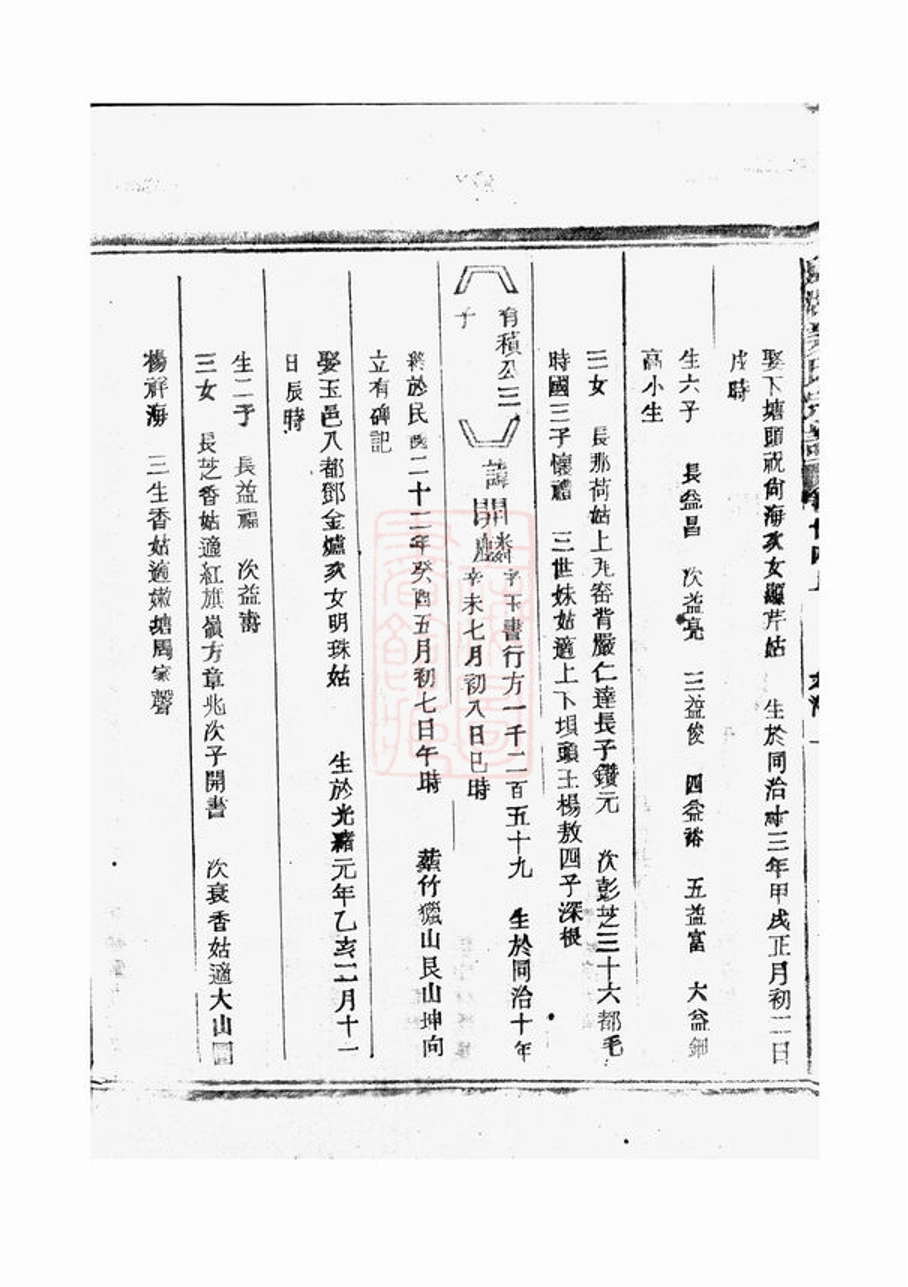 娶下塘頭祝尙海亥女顯芹姑 生於同治十三年甲戌正月初二日
戌時
生六子 長益昌 次益亮 三益俊 四益裕 五益富 六益鈿
高小生
三女 長那荷姑上瓦窑背嚴仁達長子鑽元 次彭芝三十六都毛
時國三子懷禮 三世妹姑適上下垻頭王楊敖四子深根
育積公三
子
諱開麟字玉書行方一千二百五十九 生於同治十年
辛未七月初八日巳時
終於民國二十二年癸酉五月初七日午時 葬竹獵山艮山坤向
立有碑記
娶玉邑八都鄧金爐亥女明珠姑 生於光緒元年乙亥二月十一
日辰時
生二子 長益福 次益壽
三女 長芝香姑適紅旗嶺方章兆次子開書 次袁香姑適大山
楊祥海 三生香姑適嫩塘周家聲